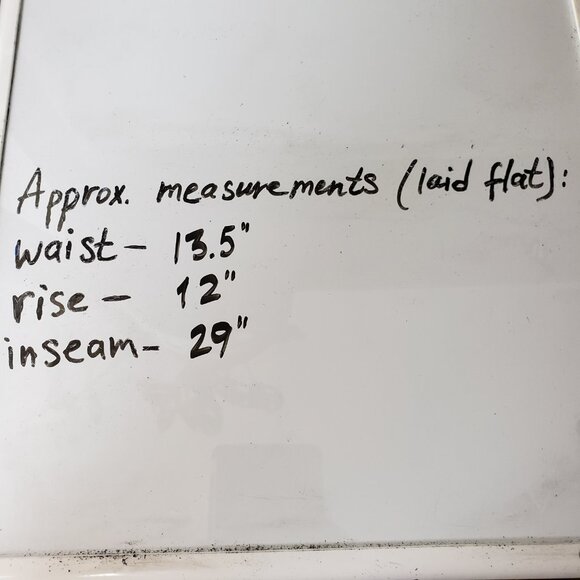 Approx. measurements (laid flat):
waist- 13.5"
rise - 12"
inseam- 29"